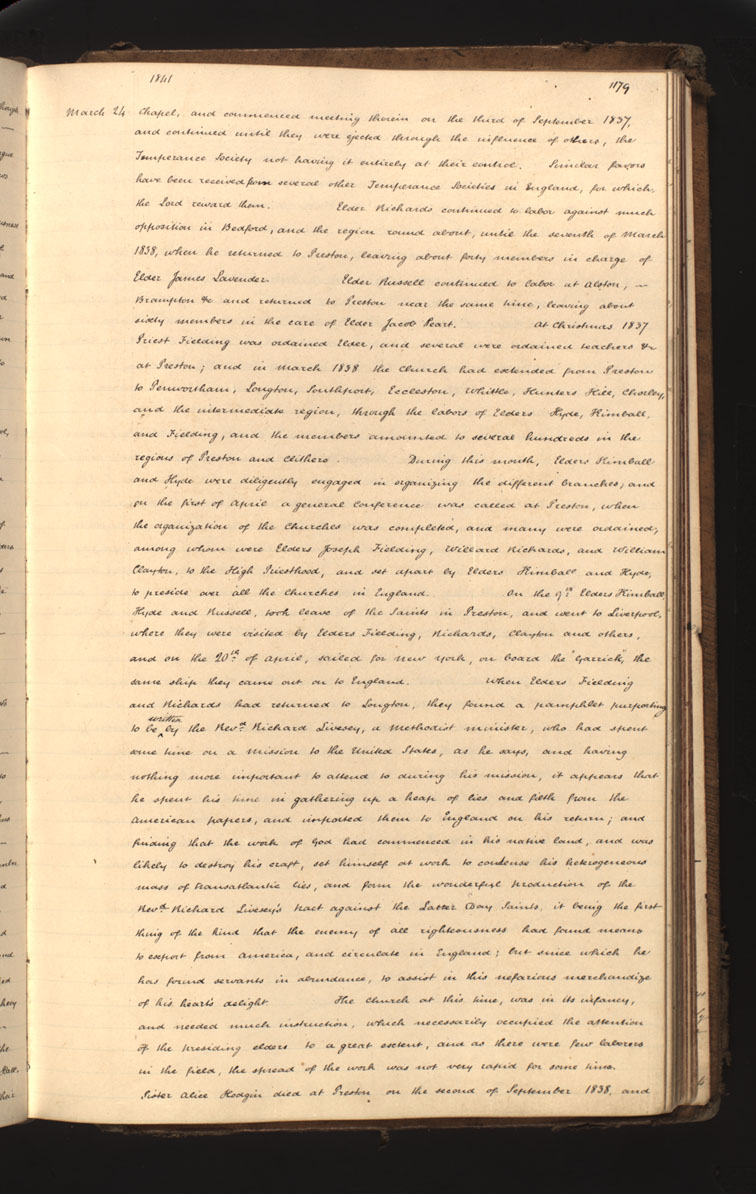 1841
1179
March 24 Chapel, and commenced meeting therein on the third of September 1837,
and continued until they were ejected through the influence of others, the
Temperance Society not having it entirely at their control. Similar favors
have been received from several other Temperance Societies in England, for which,
the Lord reward them. Elder Richards continued to labor against much
opposition in Bedford, and the region round about, until the seventh of March
1838, when he returned to Preston, leaving about forty members in charge of
Elder James Lavender. Elder Russell continued to labor at Alston, —
Brampton &c and returned to Preston near the same time, leaving about
sixty members in the care of Elder Jacob Peart. At Christmas 1837
Priest Fielding was ordained Elder, and several were ordained teachers &c
at Preston; and in March 1838 the Church had extended from Preston
to Penwortham, Longton, Southport, Eccleston, Whittle, Hunters Hill, Chorley,
and the intermediate region, through the labors of Elders Hyde, Kimball,
and Fielding, and the members amounted to several hundreds in the
regions of Preston and Clithero. During this month, Elders Kimball
and Hyde were diligently engaged in organizing the different branches; and
on the first of April a general Conference was called at Preston, when
the organization of the Churches was completed, and many were ordained;
among whom were Elders Joseph Fielding, Willard Richards, and William
Clayton, to the High Priesthood, and set apart by Elders Kimball and Hyde,
to preside over all the Churches in England. On the 9th Elders Kimball
Hyde and Russell, took leave of the Saints in Preston, and went to Liverpool,
where they were visited by Elders Fielding, Richards, Clayton and others,
and on the 20th of April, sailed for New York, on board the "Garrick", the
same ship they came out on to England. When Elders Fielding
and Richards had returned to Longton, they found a pamphlet purporting
to be written by the Revd Richard Livesey, a Methodist minister, who had spent
some time on a mission to the United States, as he says, and having
nothing more important to attend to during his mission, it appears that
he spent his time in gathering up a heap of lies and filth from the
American papers, and imported them to England on his return; and
finding that the work of God had commenced in his native land, and was
likely to destroy his craft, set himself at work to condense his heterogeneous
mass of transatlantic lies, and form the wonderful production of the
Revd Richard Livesey's tract against the Latter Day Saints, it being the first
thing of the kind that the enemy of all righteousness had found means
to export from America, and circulate in England; but since which he
has found servants in abundance, to assist in this nefarious merchandize
of his heart's delight. The Church at this time, was in its infancy,
and needed much instruction, which necessarily occupied the attention
of the presiding elders to a great extent, and as there were few laborers
in the field, the spread of the work was not very rapid for some time.
Sister Alice Hodgin died at Preston on the second of September 1838, and